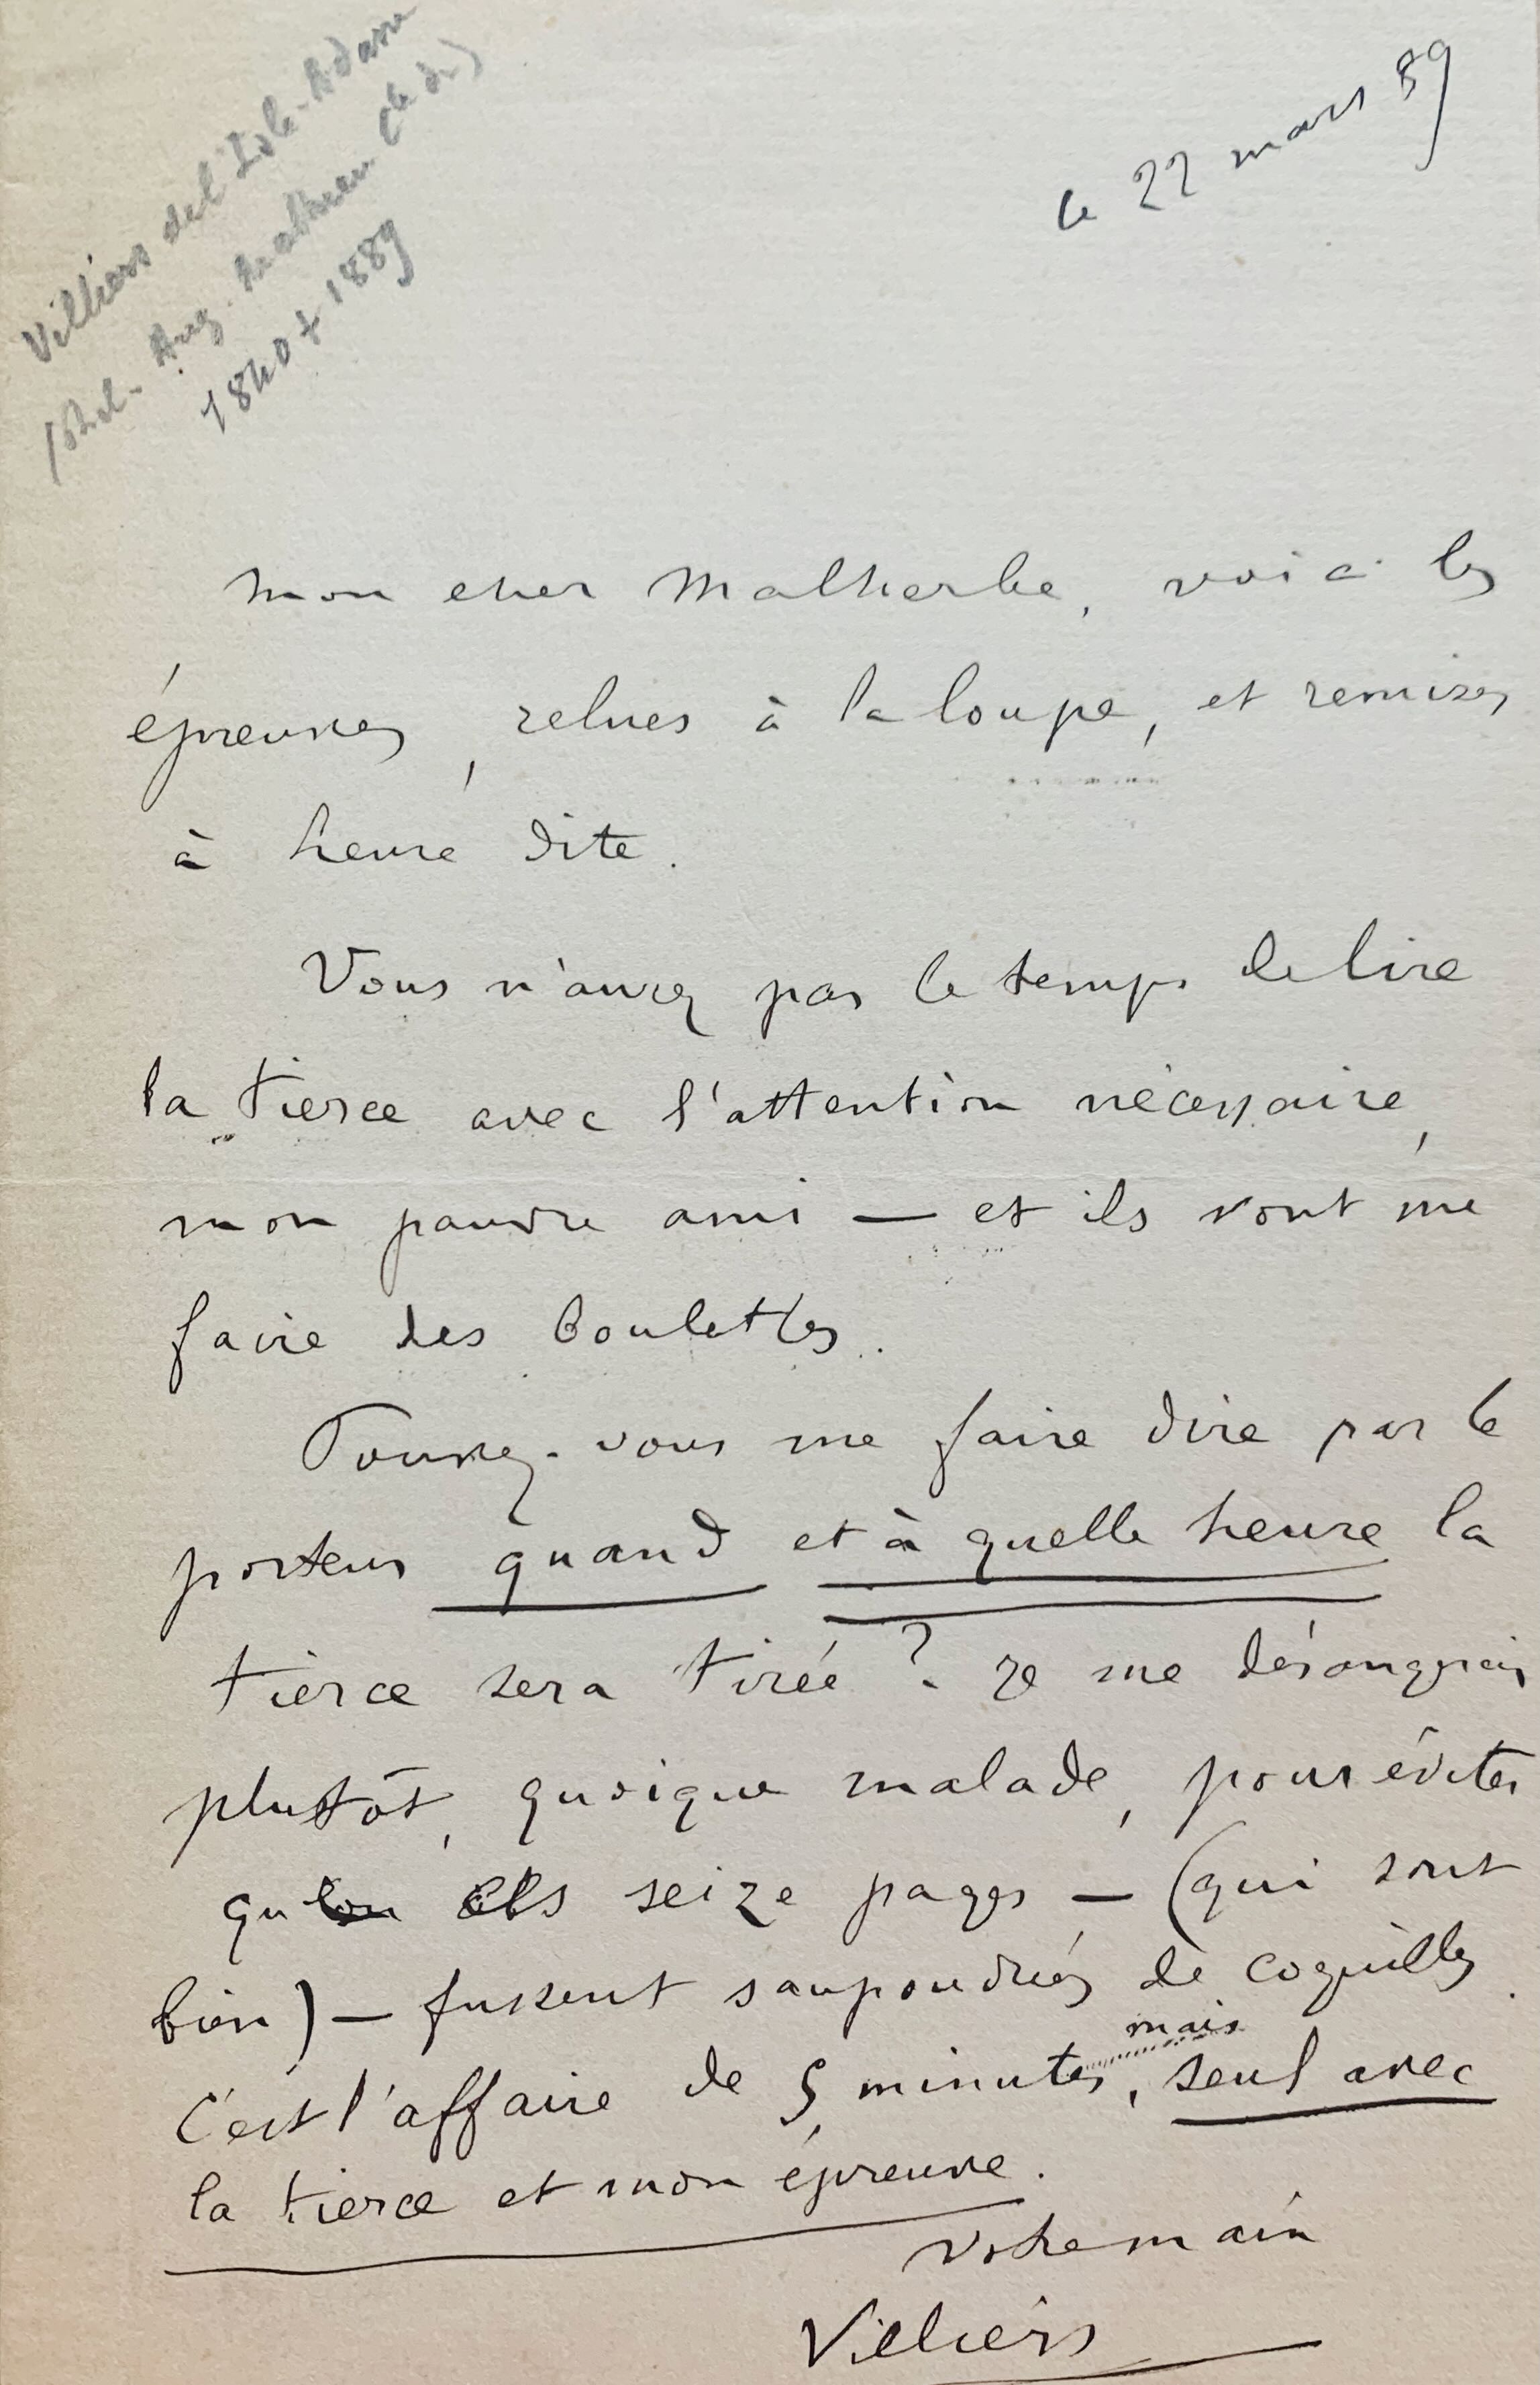 Villiers de l'Isle-Adam
(Phil-Aug. Mathieu Cte de)
1840 + 1889
le 22 mars 89
Mon cher Malherbe, voici les
épreuves, relues à la loupe, et remises
à heure dite.
Vous n'aurez pas le temps de lire
la tierce avec l'attention nécessaire,
mon pauvre ami — et ils vont me
faire des boulettes.
Pouvez-vous me faire dire par le
porteur quand et à quelle heure la
tierce sera tirée ? Je me dérangerais
plutôt, quoique malade, pour éviter
qu seize pages — (qui sont
bien) — fussent saupoudrées de coquilles.
C'est l'affaire de 5 minutes, mais seul avec
la tierce et mon épreuve.
Votre main
Villiers